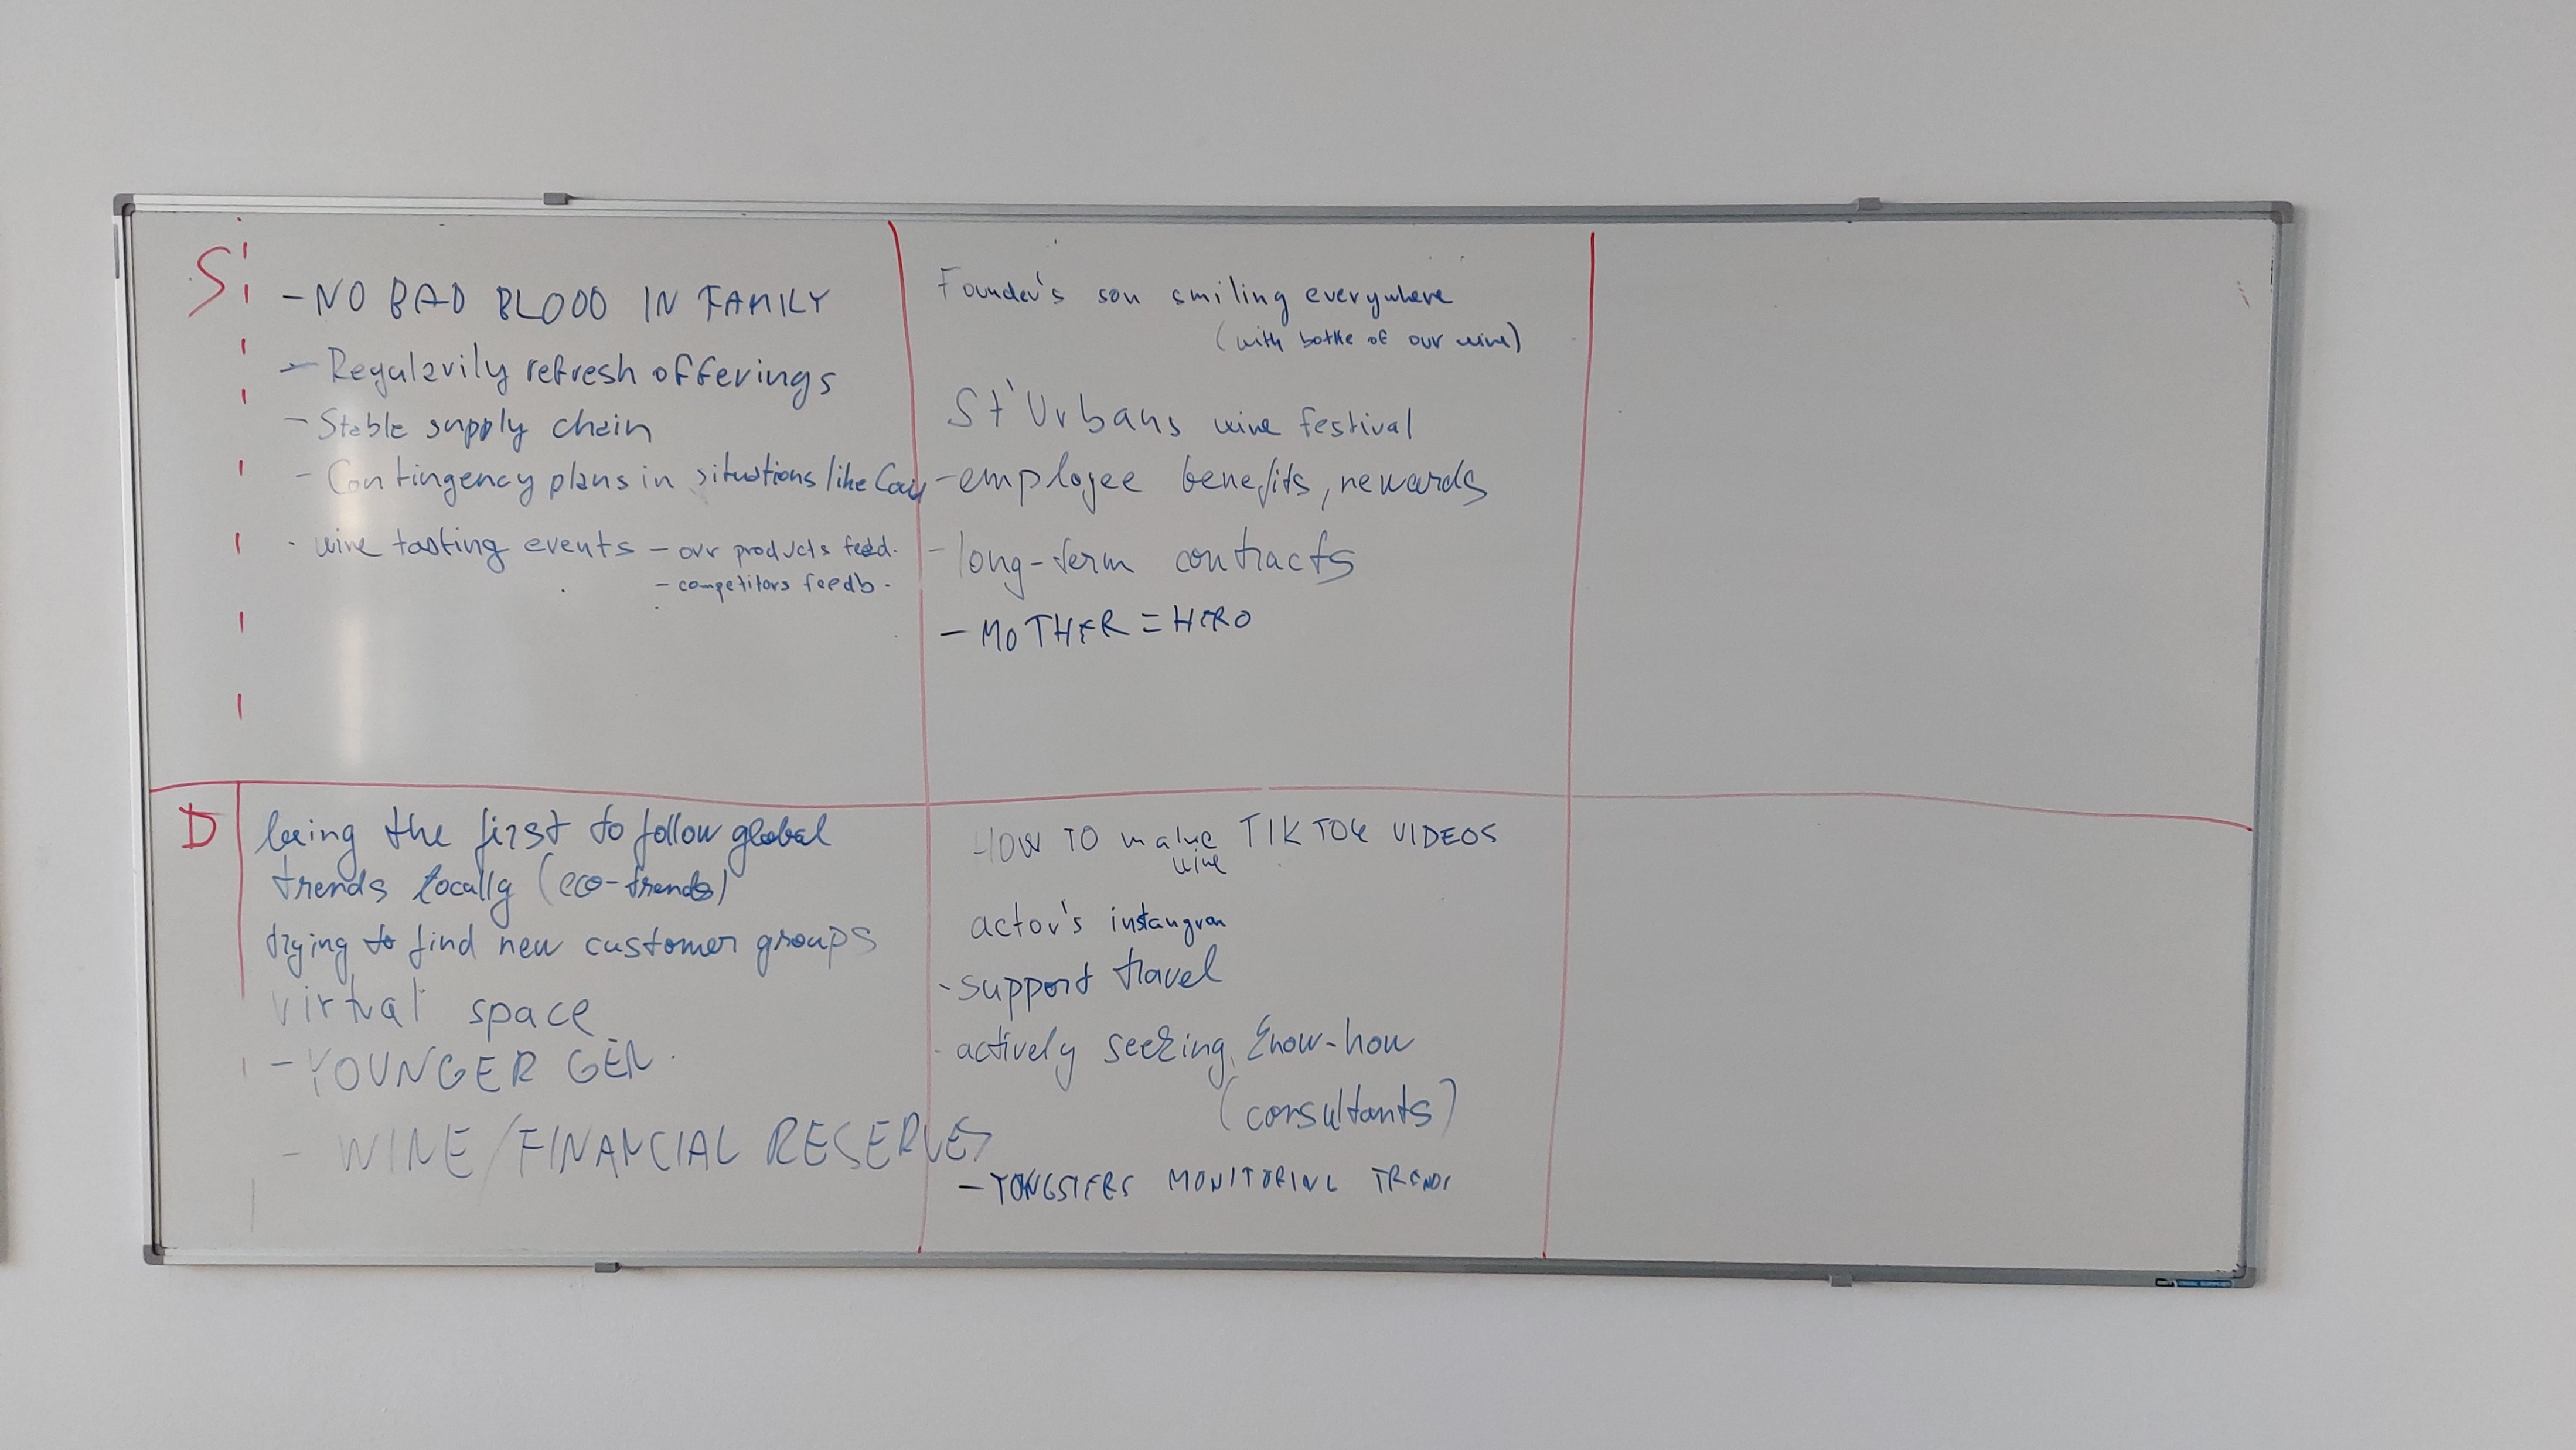 S
- NO BAD BLOOD IN FAMILY
- Regularily refresh offerings
- Stable supply chain
- Contingency plans in situations like
- wine tasting events - our products feed.
- competitors feedb.
Founder's son smiling everywhere
(with bottle of our wine)
St'Urbans wine festival
- employee benefits, rewards
- long-term contracts
- MOTHER = HERO
D
being the first to follow global
trends locally (eco-trends)
trying to find new customer groups
virtual space
- YOUNGER GEN.
- WINE/FINANCIAL RESERVES
HOW TO make TIKTOK VIDEOS
wine
actor's instangram
- support travel
- actively seeking know-how
(consultants)
- YONGSTERS MONITORING TRENDS